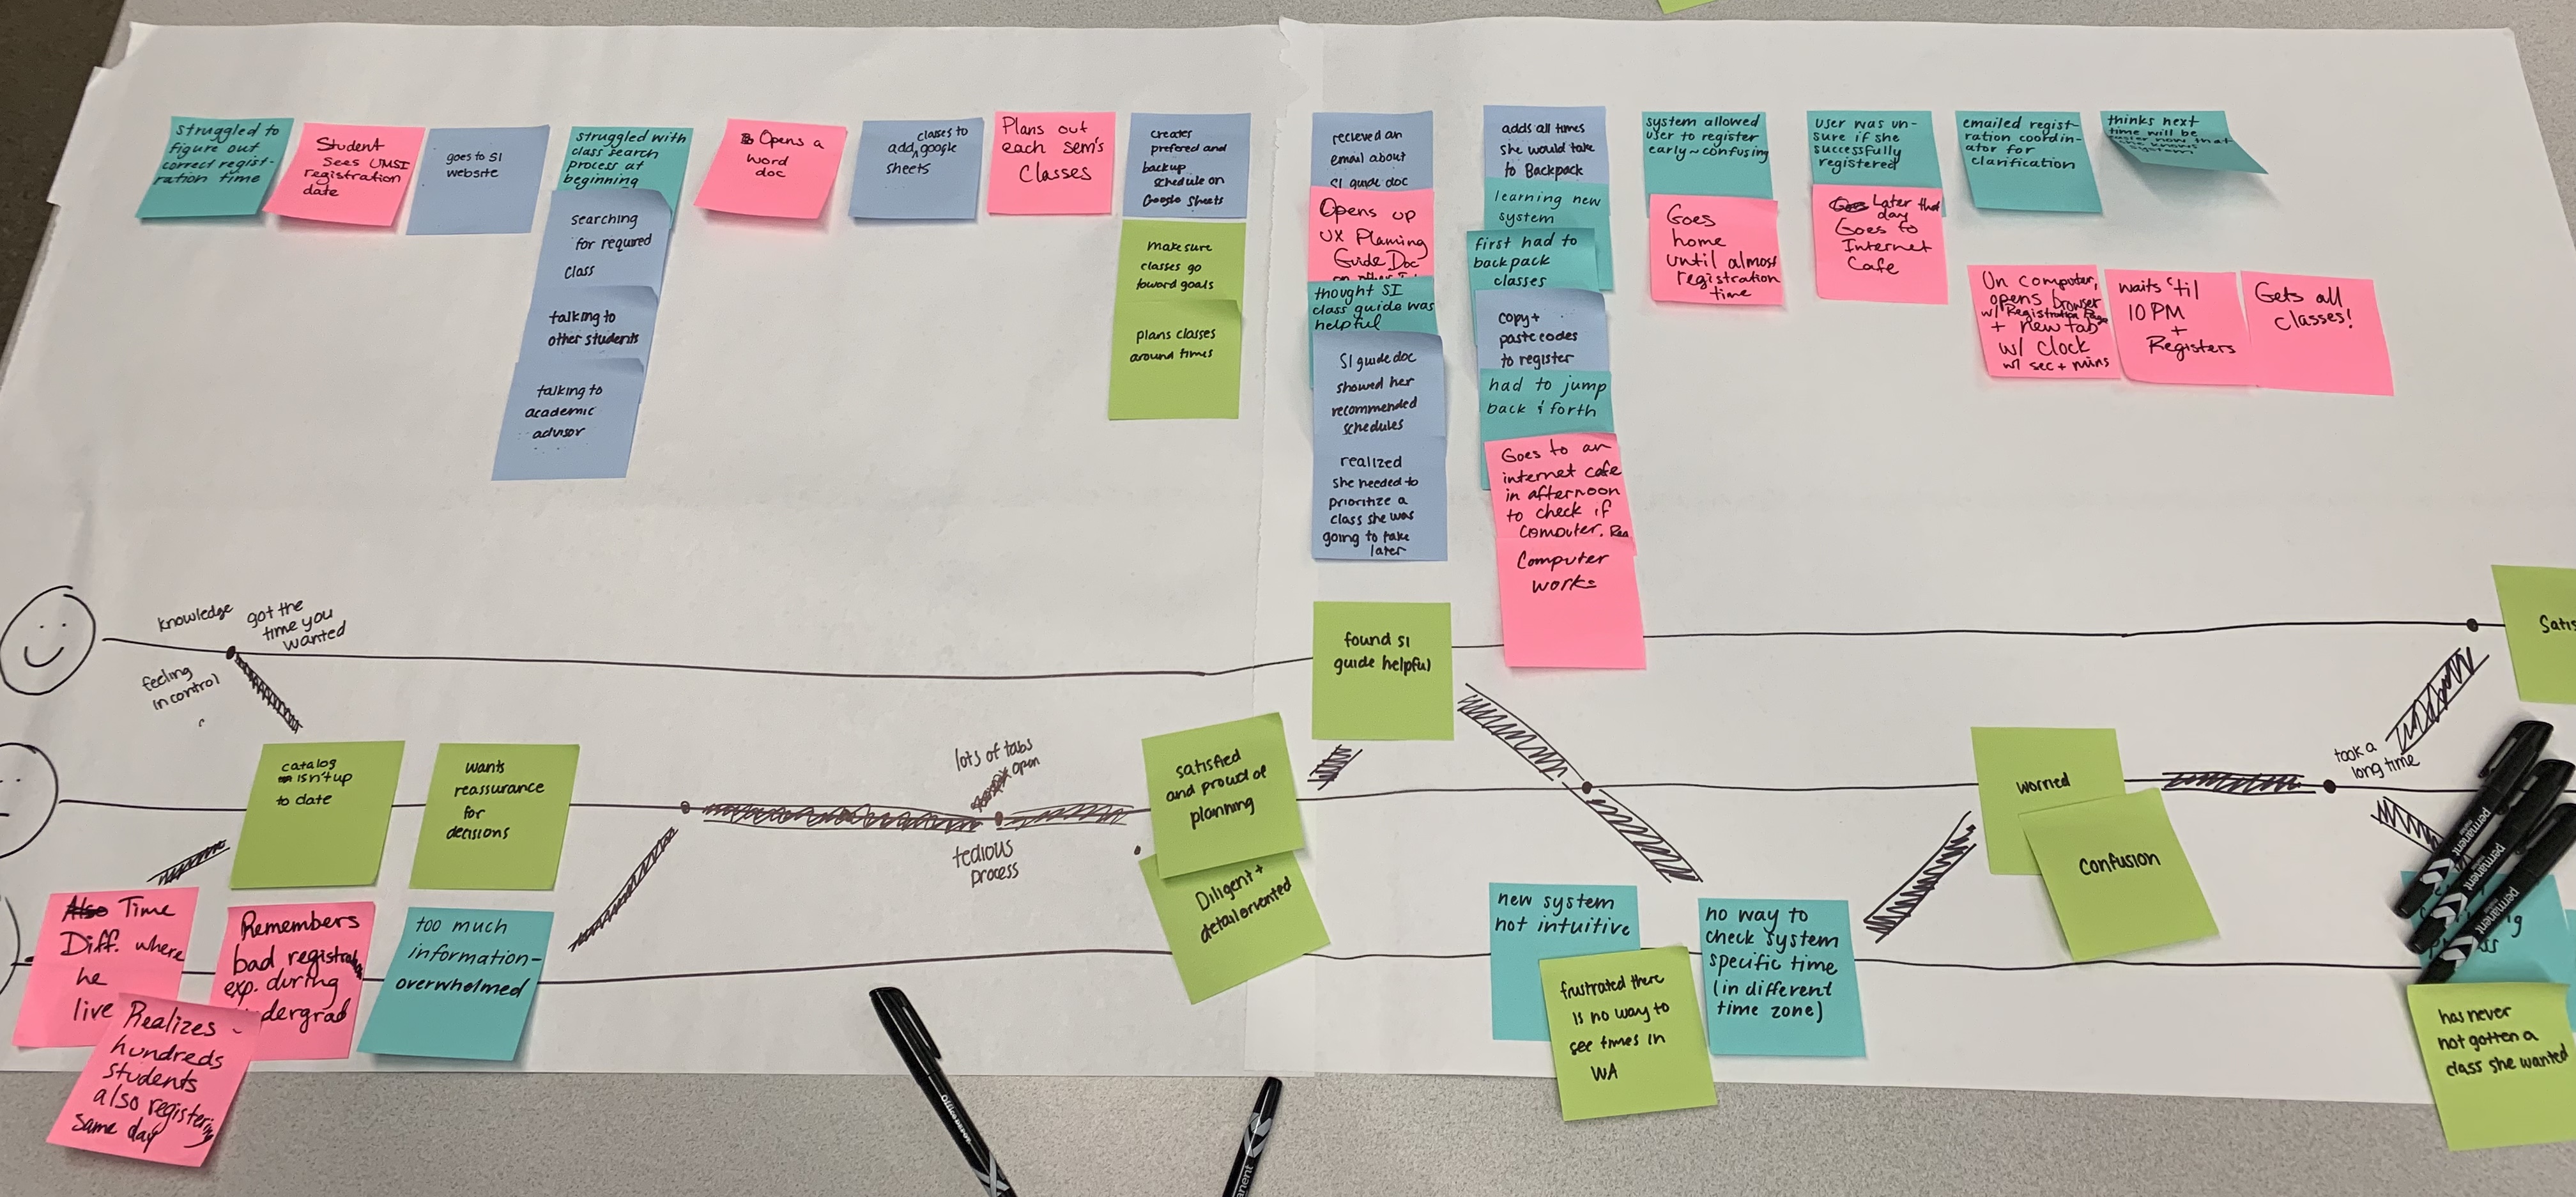 struggled to
figure out
correct regist-
ration time
Student
sees UMSI
registration
date
goes to SI
website
struggled with
class search
process at
beginning
searching
for required
class
talking to
other students
talking to
academic
advisor
Opens a
word
doc
classes to
add google
sheets
Plans out
each sem's
Classes
creates
prefered and
backup
schedule on
Google Sheets
make sure
classes go
toward goals
plans classes
around times
recieved an
email about
SI guide doc
Opens up
UX Planing
Guide Doc
thought SI
class guide was
helpful
SI guide doc
showed her
recommended
schedules
realized
she needed to
prioritize a
class she was
going to take
later
adds all times
she would take
to Backpack
learning new
system
first had to
backpack
classes
copy+
paste codes
to register
had to jump
back & forth
Goes to an
internet cafe
in afternoon
to check if
computer.
Computer
works
system allowed
user to register
early~confusing
Goes
home
until almost
registration
time
user was un-
sure if she
successfully
registered
Later that
day
Goes to
Internet
Cafe
emailed regist-
ration coordin-
ator for
clarification
thinks next
time will be
On computer,
opens browser
w/ Registration Page
+ new tab
w/ clock
w/ sec + mins
waits 'til
10 PM
+
Registers
Gets all
classes!
knowledge
got the
time you
wanted
feeling
in control
found SI
guide helpful
Satis
catalog
isn't up
to date
wants
reassurance
for
decisions
lots of tabs
open
tedious
process
satisfied
and proud of
planning
Diligent +
detail oriented
worried
Confusion
took a
long time
Also Time
Diff. where
he
live
Remembers
bad registra
exp. during
undergrad
Realizes
hundreds
students
also registering
same day
too much
information-
overwhelmed
new system
not intuitive
frustrated there
is no way to
see times in
WA
no way to
check system
specific time
(in different
time zone)
has never
not gotten a
class she wanted
permanent
permanent
permanent
Office DEPOT
anent